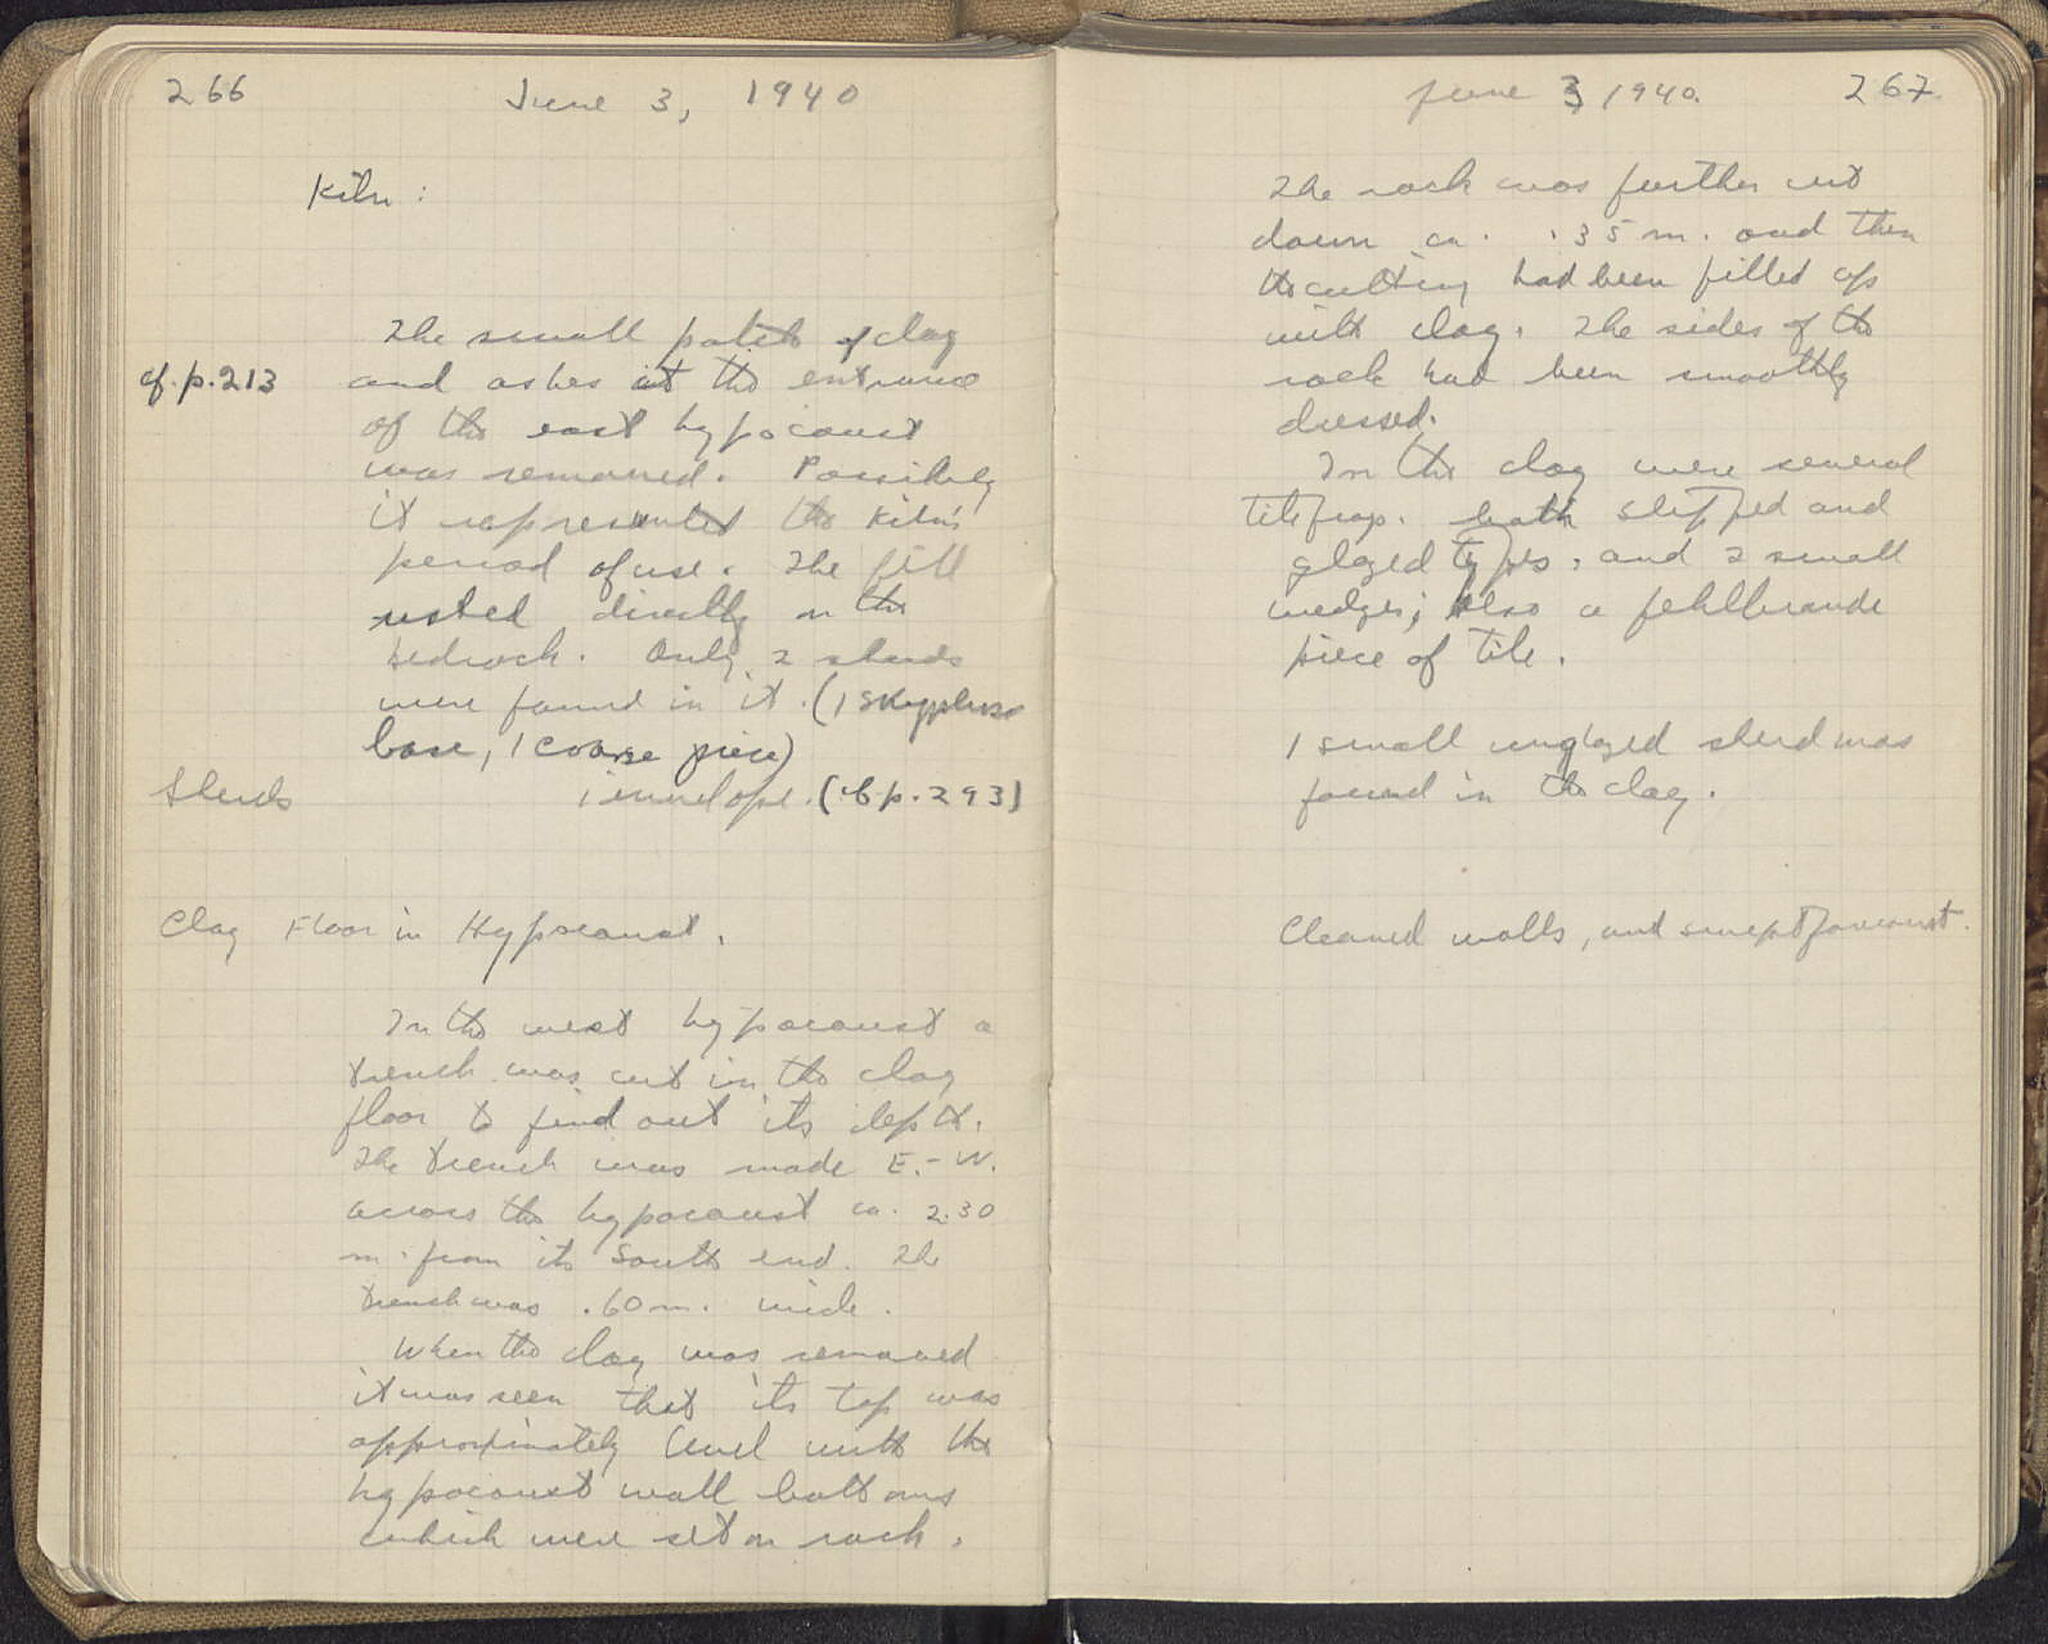 266 June 3, 1940
Kiln :
The small patch of clay
cf. p. 213 and ashes at the entrance
of the east hypocaust
was removed. Possibly
it represented the kiln's
period of use. The fill
rested directly on the
bedrock. Only 2 sherds
were found in it. (1 skyphos
base, 1 coarse piece)
Sherds 1 envelope. (cf. p. 293)
Clay Floor in Hypocaust.
In the west hypocaust a
trench was cut in the clay
floor to find out its depth.
The trench was made E.-W.
across the hypocaust ca. 2.30
m. from its south end. The
trench was .60 m. wide.
When the clay was removed
it was seen that its top was
approximately level with the
hypocaust wall bottoms
which were set on rock.
June 3 1940. 267
The rock was further cut
down ca. .35 m. and then
the cutting had been filled up
with clay. The sides of the
rock had been smoothly
dressed.
In the clay were several
tile frags. both slipped and
glazed types, and 2 small
wedges; also a fehlbrande
piece of tile.
1 small unglazed sherd was
found in the clay.
Cleaned walls, and swept